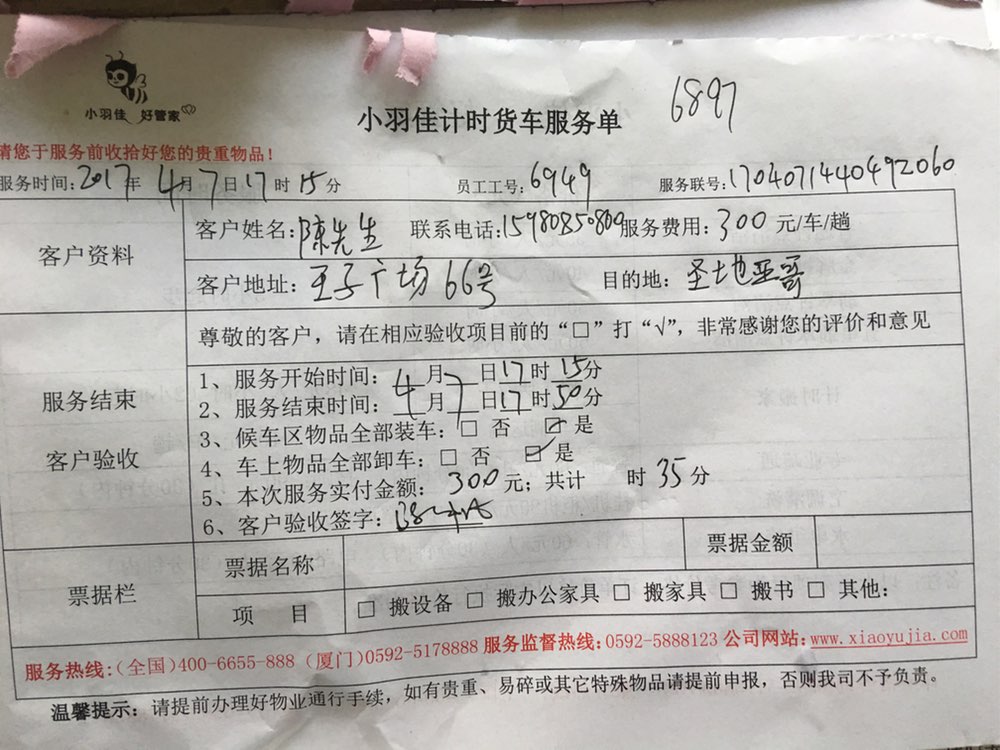 小羽佳 好管家
小羽佳计时货车服务单 6897
请您于服务前收拾好您的贵重物品!
服务时间:2017年4月7日17时15分 员工工号:6949 服务联号:1704071440492060
客户资料
客户姓名:陈先生 联系电话:15980850809服务费用:300元/车/趟
客户地址:王子广场66号 目的地:圣地亚哥
服务结束
客户验收
尊敬的客户，请在相应验收项目前的“□”打“√”,非常感谢您的评价和意见
1、服务开始时间:4月7日17时15分
2、服务结束时间:4月7日17时50分
3、候车区物品全部装车:□ 否 ☑ 是
4、车上物品全部卸车:□ 否 ☑ 是
5、本次服务实付金额: 300元; 共计 时35分
6、客户验收签字:
票据栏
票据名称 票据金额
项 目 □ 搬设备 □ 搬办公家具 □ 搬家具 □ 搬书 □ 其他:
服务热线:(全国)400-6655-888 (厦门)0592-5178888 服务监督热线:0592-5888123 公司网站:www.xiaoyujia.com
温馨提示: 请提前办理好物业通行手续，如有贵重、易碎或其它特殊物品请提前申报，否则我司不予负责。